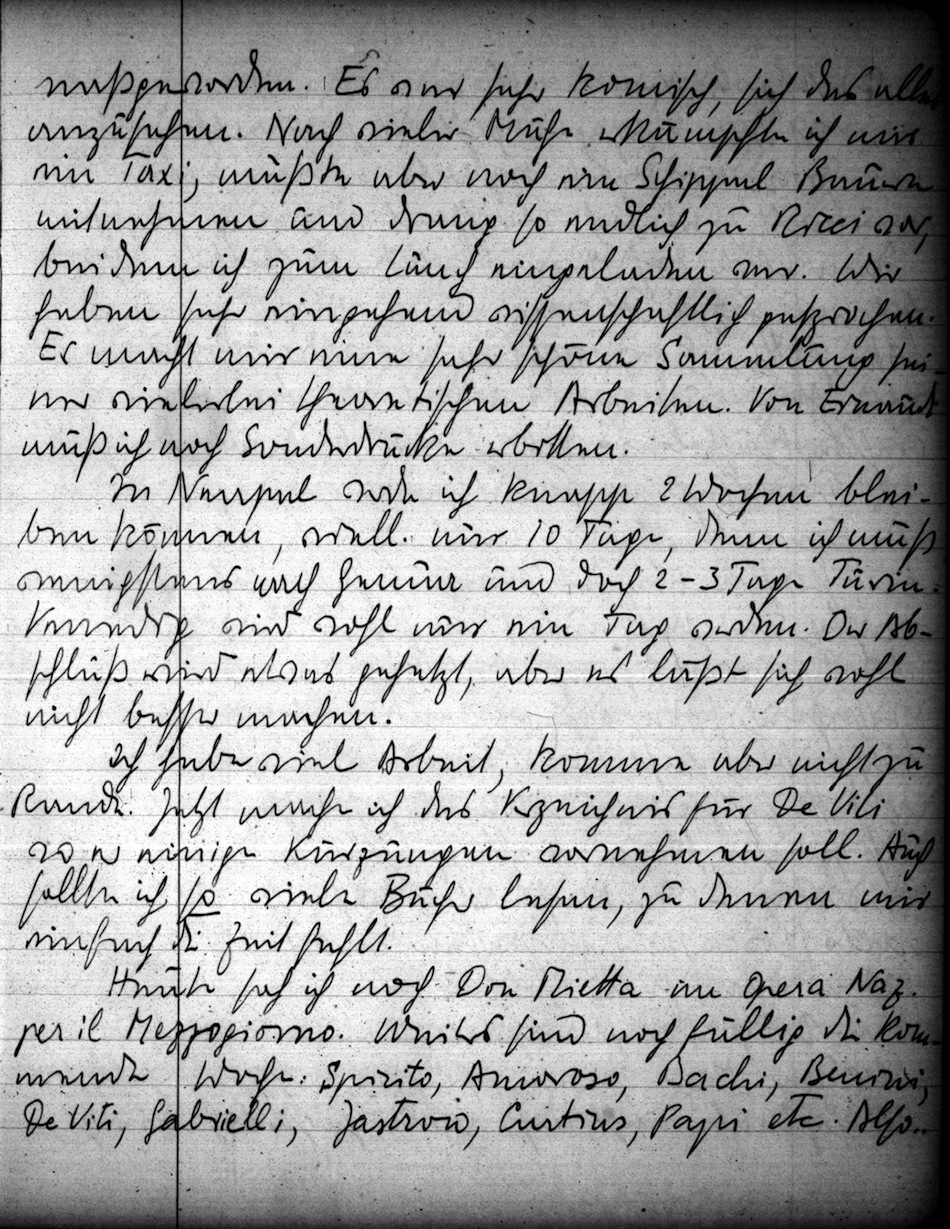 naßgeworden. Es war sehr komisch, sich das alles
anzusehen. Nach vieler Mühe erkämpfte ich mir
ein Taxi, mußte aber noch eine Schippel Bauern
mitnehmen und drang so endlich zu Ricci vor,
bei dem ich zum Lunch eingeladen war. Wir
haben sehr eingehend wissenschaftlich gesprochen.
Er macht mir eine sehr schöne Sammlung sei-
ner vielerlei theoretischen Arbeiten. Von Einaudi
muß ich noch Sonderdrucke erbitten.
In Neapel werde ich knapp 2 Wochen blei-
ben können, viell. nur 10 Tage, denn ich muß
wenigstens nach Genua und doch 2-3 Tage Turin.
Venedig wird wohl nur ein Tag werden. Der Ab-
schluß wird etwas gehetzt, aber es läßt sich wohl
nicht besser machen.
Ich habe viel Arbeit, komme aber nicht zu
Rande. Jetzt mache ich das Verzeichnis für De Viti
wo er einige Kürzungen vornehmen soll. Auch
sollte ich so viele Bücher lesen, zu denen mir
einfach die Zeit fehlt.
Heute sah ich noch Don Mietta im Opera Naz.
per il Mezzogiorno. Weiters sind noch fällig die kom-
mende Woche: Spirito, Amoroso, Bachi, Benini,
De Viti, Gabrielli, Jastrow, Curtius, Papi etc. Also..